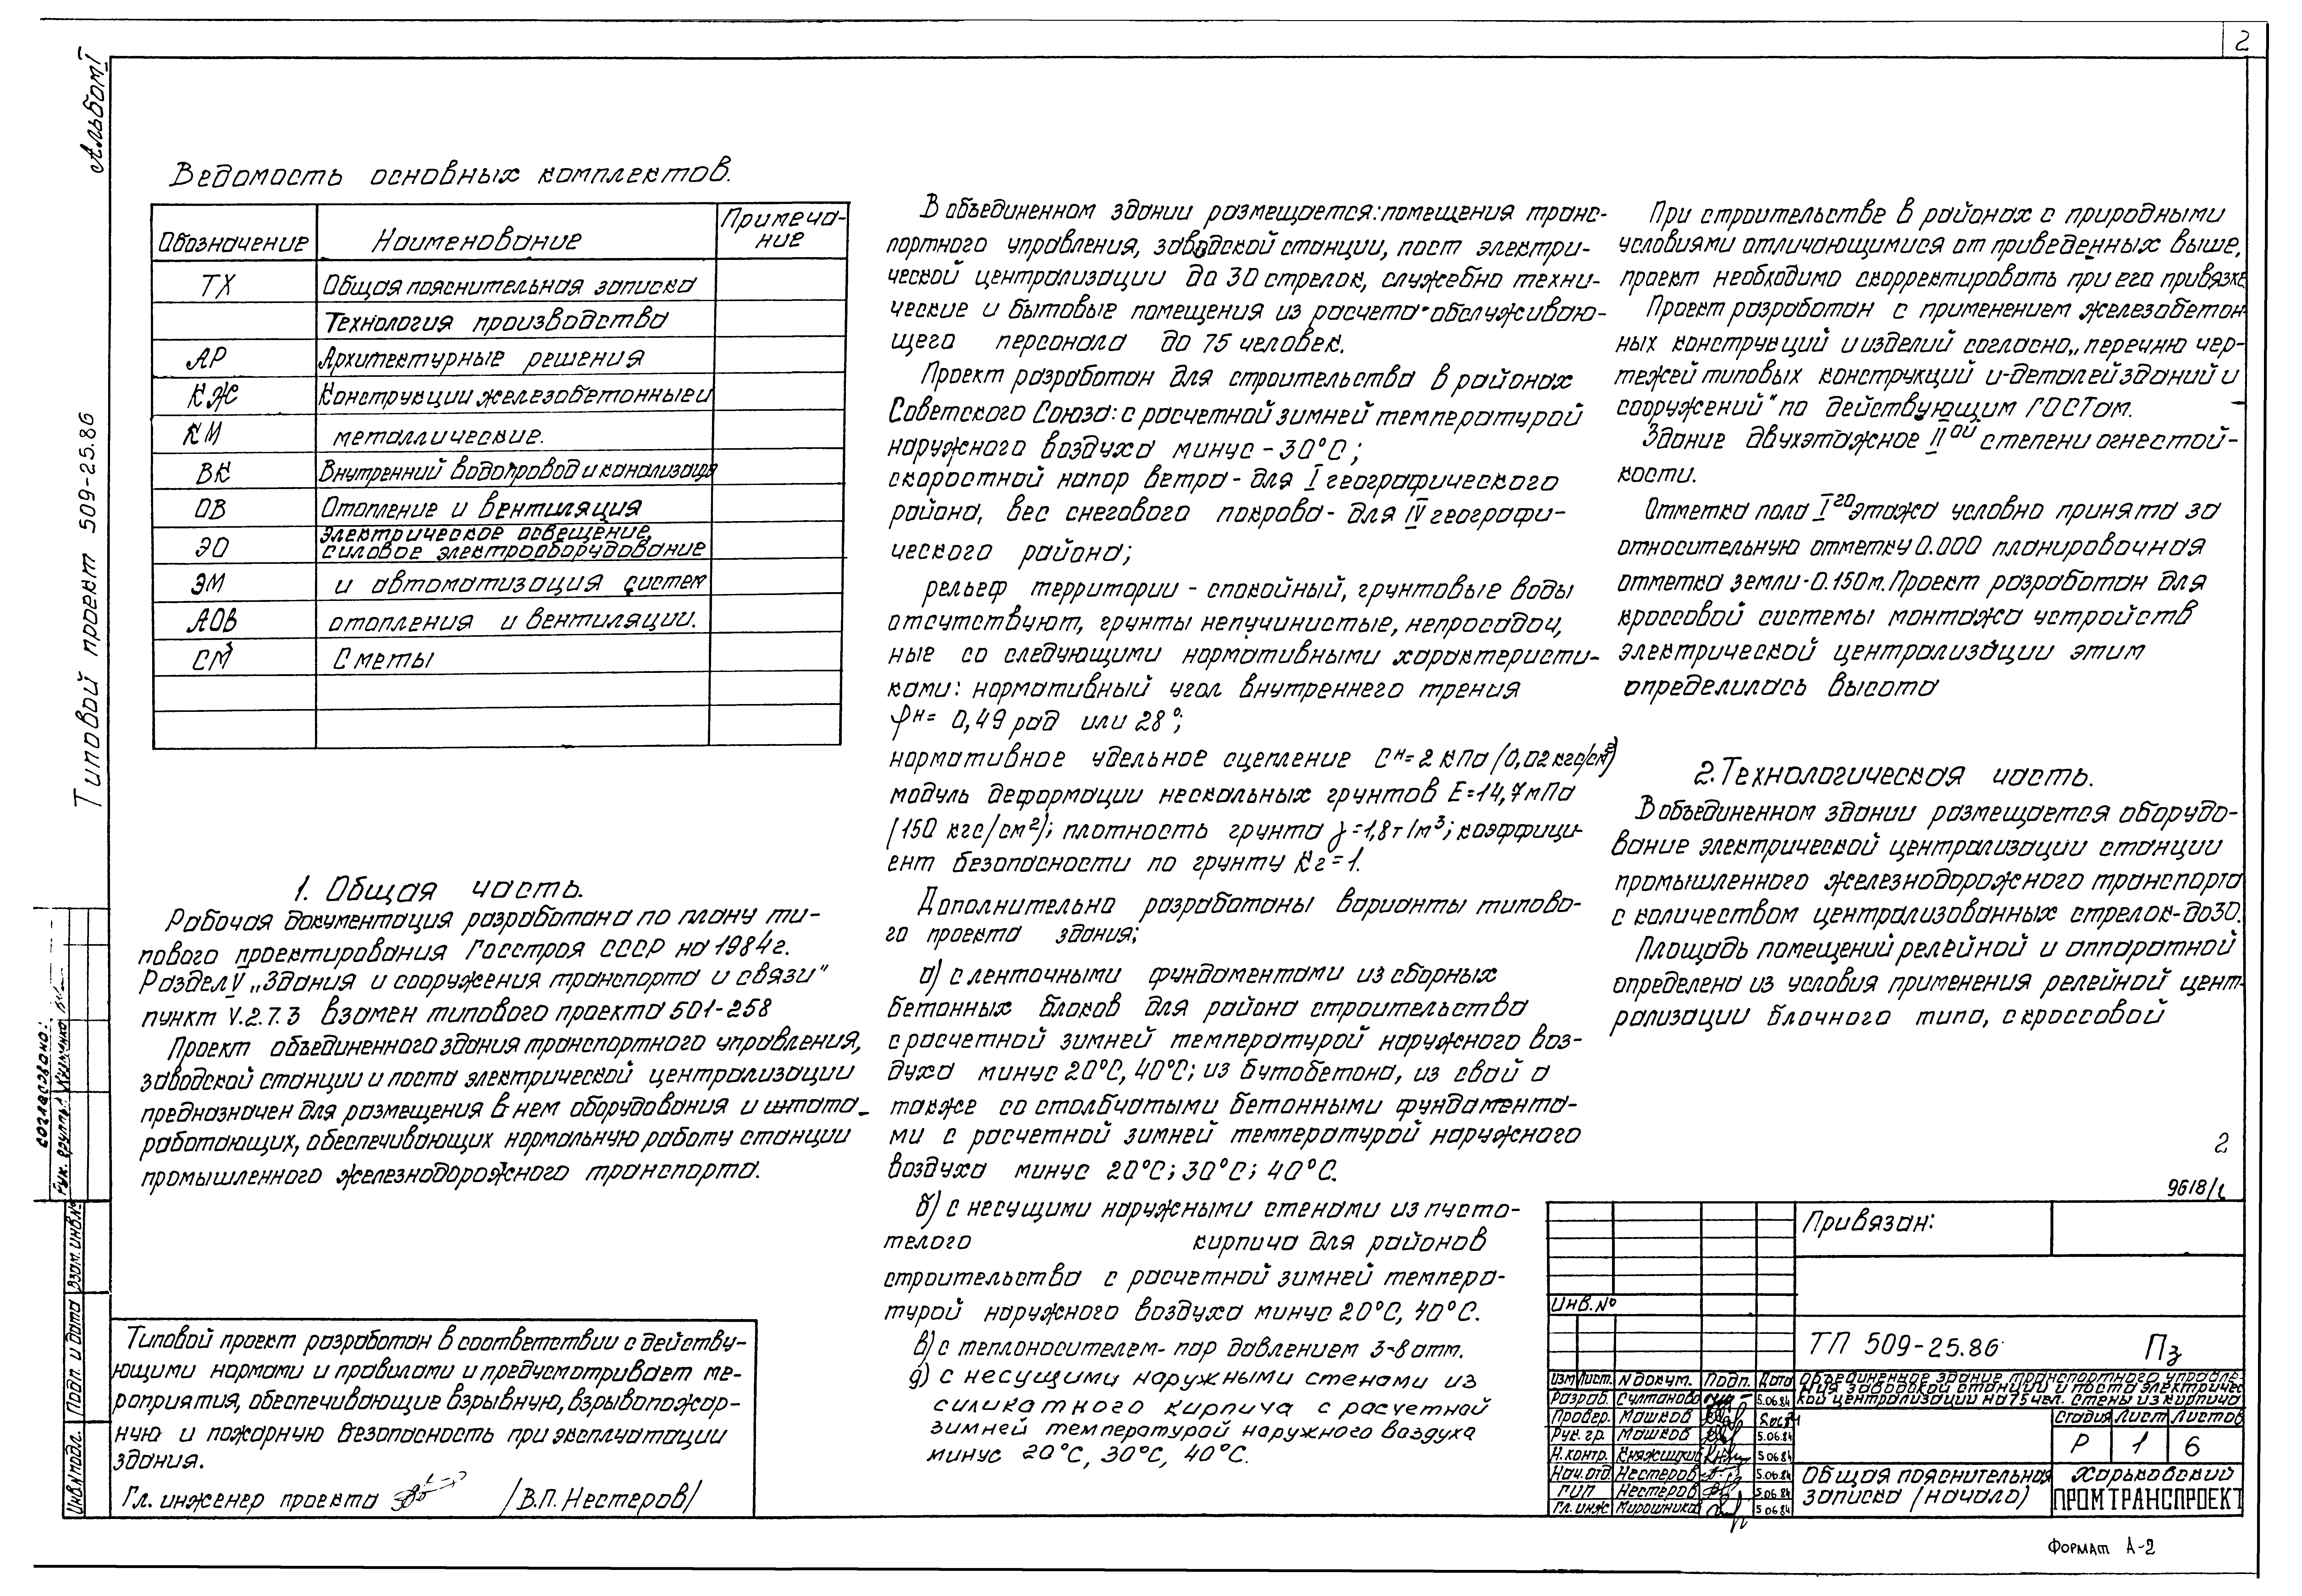 2
Альбом I
Типовой проект 509-25.86
Ведомость основных комплектов.
Обозначение Наименование Примеча-
ние
ТХ Общая пояснительная записка
Технология производства
АР Архитектурные решения
КЖ Конструкции железобетонные и
КМ металлические.
ВК Внутренний водопровод и канализация
ОВ Отопление и вентиляция
ЭО Электрическое освещение,
силовое электрооборудование
ЭМ и автоматизация систем
АОВ отопления и вентиляции.
СМ Сметы
1. Общая часть.
Рабочая документация разработана по плану ти-
пового проектирования Госстроя СССР на 1984г.
Раздел V „Здания и сооружения транспорта и связи"
пункт V.2.7.3 взамен типового проекта 501-258
Проект объединенного здания транспортного управления,
заводской станции и поста электрической централизации
предназначен для размещения в нем оборудования и штата
работающих, обеспечивающих нормальную работу станции
промышленного железнодорожного транспорта.
Типовой проект разработан в соответствии с действу-
ющими нормами и правилами и предусматривает ме-
роприятия, обеспечивающие взрывную, взрывопожар-
ную и пожарную безопасность при эксплуатации
здания.
Гл. инженер проекта /В.П. Нестеров/
В объединенном здании размещается: помещения транс-
портного управления, заводской станции, пост электри-
ческой централизации до 30 стрелок, служебно техни-
ческие и бытовые помещения из расчета обслуживаю-
щего персонала до 75 человек.
Проект разработан для строительства в районах
Советского Союза: с расчетной зимней температурой
наружного воздуха минус - 30°С;
скоростной напор ветра - для I географического
района, вес снегового покрова - для IV географи-
ческого района;
рельеф территории - спокойный, грунтовые воды
отсутствуют, грунты непучинистые, непросадоч,
ные со следующими нормативными характеристи-
ками: нормативный угол внутреннего трения
φн = 0,49 рад или 28°;
нормативное удельное сцепление Сн = 2 кПа (0,02 кгс/см²)
модуль деформации нескальных грунтов Е = 14,7 мПа
(150 кгс/см²); плотность грунта γ = 1,8 т/м³; коэффици-
ент безопасности по грунту Кг = 1.
Дополнительно разработаны варианты типово-
го проекта здания;
а) с ленточными фундаментами из сборных
бетонных блоков для района строительства
с расчетной зимней температурой наружного воз-
духа минус 20°С, 40°С; из бутобетона, из свай а
также со столбчатыми бетонными фундамента-
ми с расчетной зимней температурой наружного
воздуха минус 20°С; 30°С; 40°С.
б) с несущими наружными стенами из пусто-
телого кирпича для районов
строительства с расчетной зимней темпера-
турой наружного воздуха минус 20°С, 40°С.
в) с теплоносителем - пар давлением 3-8 атм.
д) с несущими наружными стенами из
силикатного кирпича с расчетной
зимней температурой наружного воздуха
минус 20°С, 30°С, 40°С.
При строительстве в районах с природными
условиями отличающимися от приведенных выше,
проект необходимо скорректировать при его привязке
Проект разработан с применением железобетон-
ных конструкций и изделий согласно „перечню чер-
тежей типовых конструкций и деталей зданий и
сооружений" по действующим ГОСТам.
Здание двухэтажное IIой степени огнестой-
кости.
Отметка пола Iго этажа условно принята за
относительную отметку 0.000 планировочная
отметка земли - 0.150м. Проект разработан для
кроссовой системы монтажа устройств
электрической централизации этим
определилась высота
2. Технологическая часть.
В объединенном здании размещается оборудо-
вание электрической централизации станции
промышленного железнодорожного транспорта
с количеством централизованных стрелок - до 30.
Площадь помещений релейной и аппаратной
определена из условия применения релейной цент-
рализации блочного типа, с кроссовой
2
9618/1
согласовано:
Рук. группы
Взам. инв.№
Подп. и дата
Инв.№подл.
Привязан:
Инв. №
ТП 509-25.86 Пз
Изм Лист N докум. Подп. Дата
Объединенное здание транспортного управле-
ния заводской станции и поста электричес-
кой централизации на 75 чел. Стены из кирпича
Разраб. Султанова 5.06.84
Провер. Машков 5.06.84
Рук. гр. Машков 5.06.84
Н. контр. Княжицкий 5.06.84
Нач. отд Нестеров 5.06.84
ГИП Нестеров 5.06.84
Гл. инж Мирошников 5.06.84
Стадия Лист Листов
Р 1 6
Общая пояснительная
записка (начало)
Харьковский
ПРОМТРАНСПРОЕКТ
Формат А-2